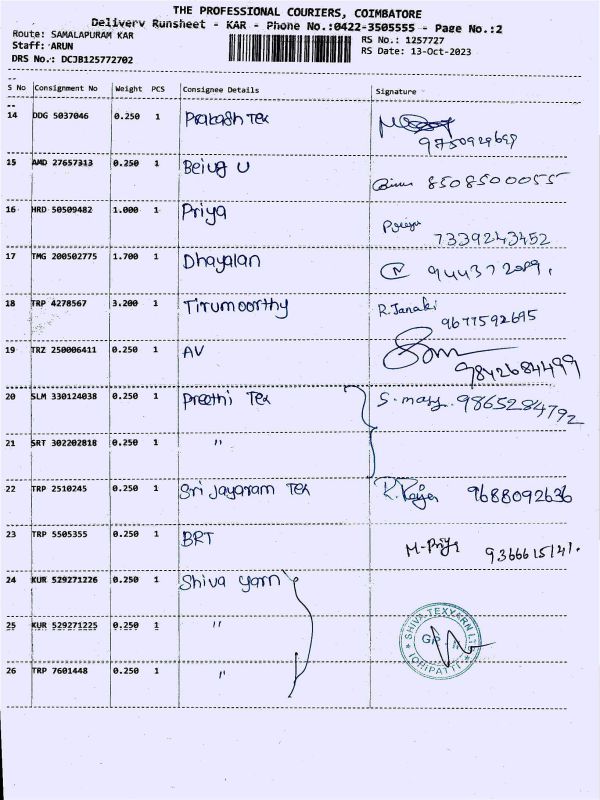 THE PROFESSIONAL COURIERS, COIMBATORE
Delivery Runsheet - KAR - Phone No.:0422-3505555 - Page No.:2
Route: SAMALAPURAM KAR RS No.: 1257727
Staff: ARUN RS Date: 13-Oct-2023
DRS No.: DCJB125772702
S No Consignment No Weight PCS Consignee Details Signature
14 DDG 5037046 0.250 1 Prakash Tex
15 AMD 27657313 0.250 1 Being U 8508500055
16 HRD 50509482 1.000 1 Priya Priya 7339243452
17 TMG 200502775 1.700 1 Dhayalan
18 TRP 4278567 3.200 1 Tirumoorthy R. Janaki 9677592695
19 TRZ 250006411 0.250 1 AV 9842684499
20 SLM 330124038 0.250 1 Preethi Tex 9865284792
21 SRT 302202818 0.250 1 "
22 TRP 2510245 0.250 1 Sri Jayaram Tex 9688092636
23 TRP 5505355 0.250 1 BRT M-Priya
24 KUR 529271226 0.250 1 Shiva yarn
25 KUR 529271225 0.250 1 "
SHIVA TEXYARN LTD
26 TRP 7601448 0.250 1 "